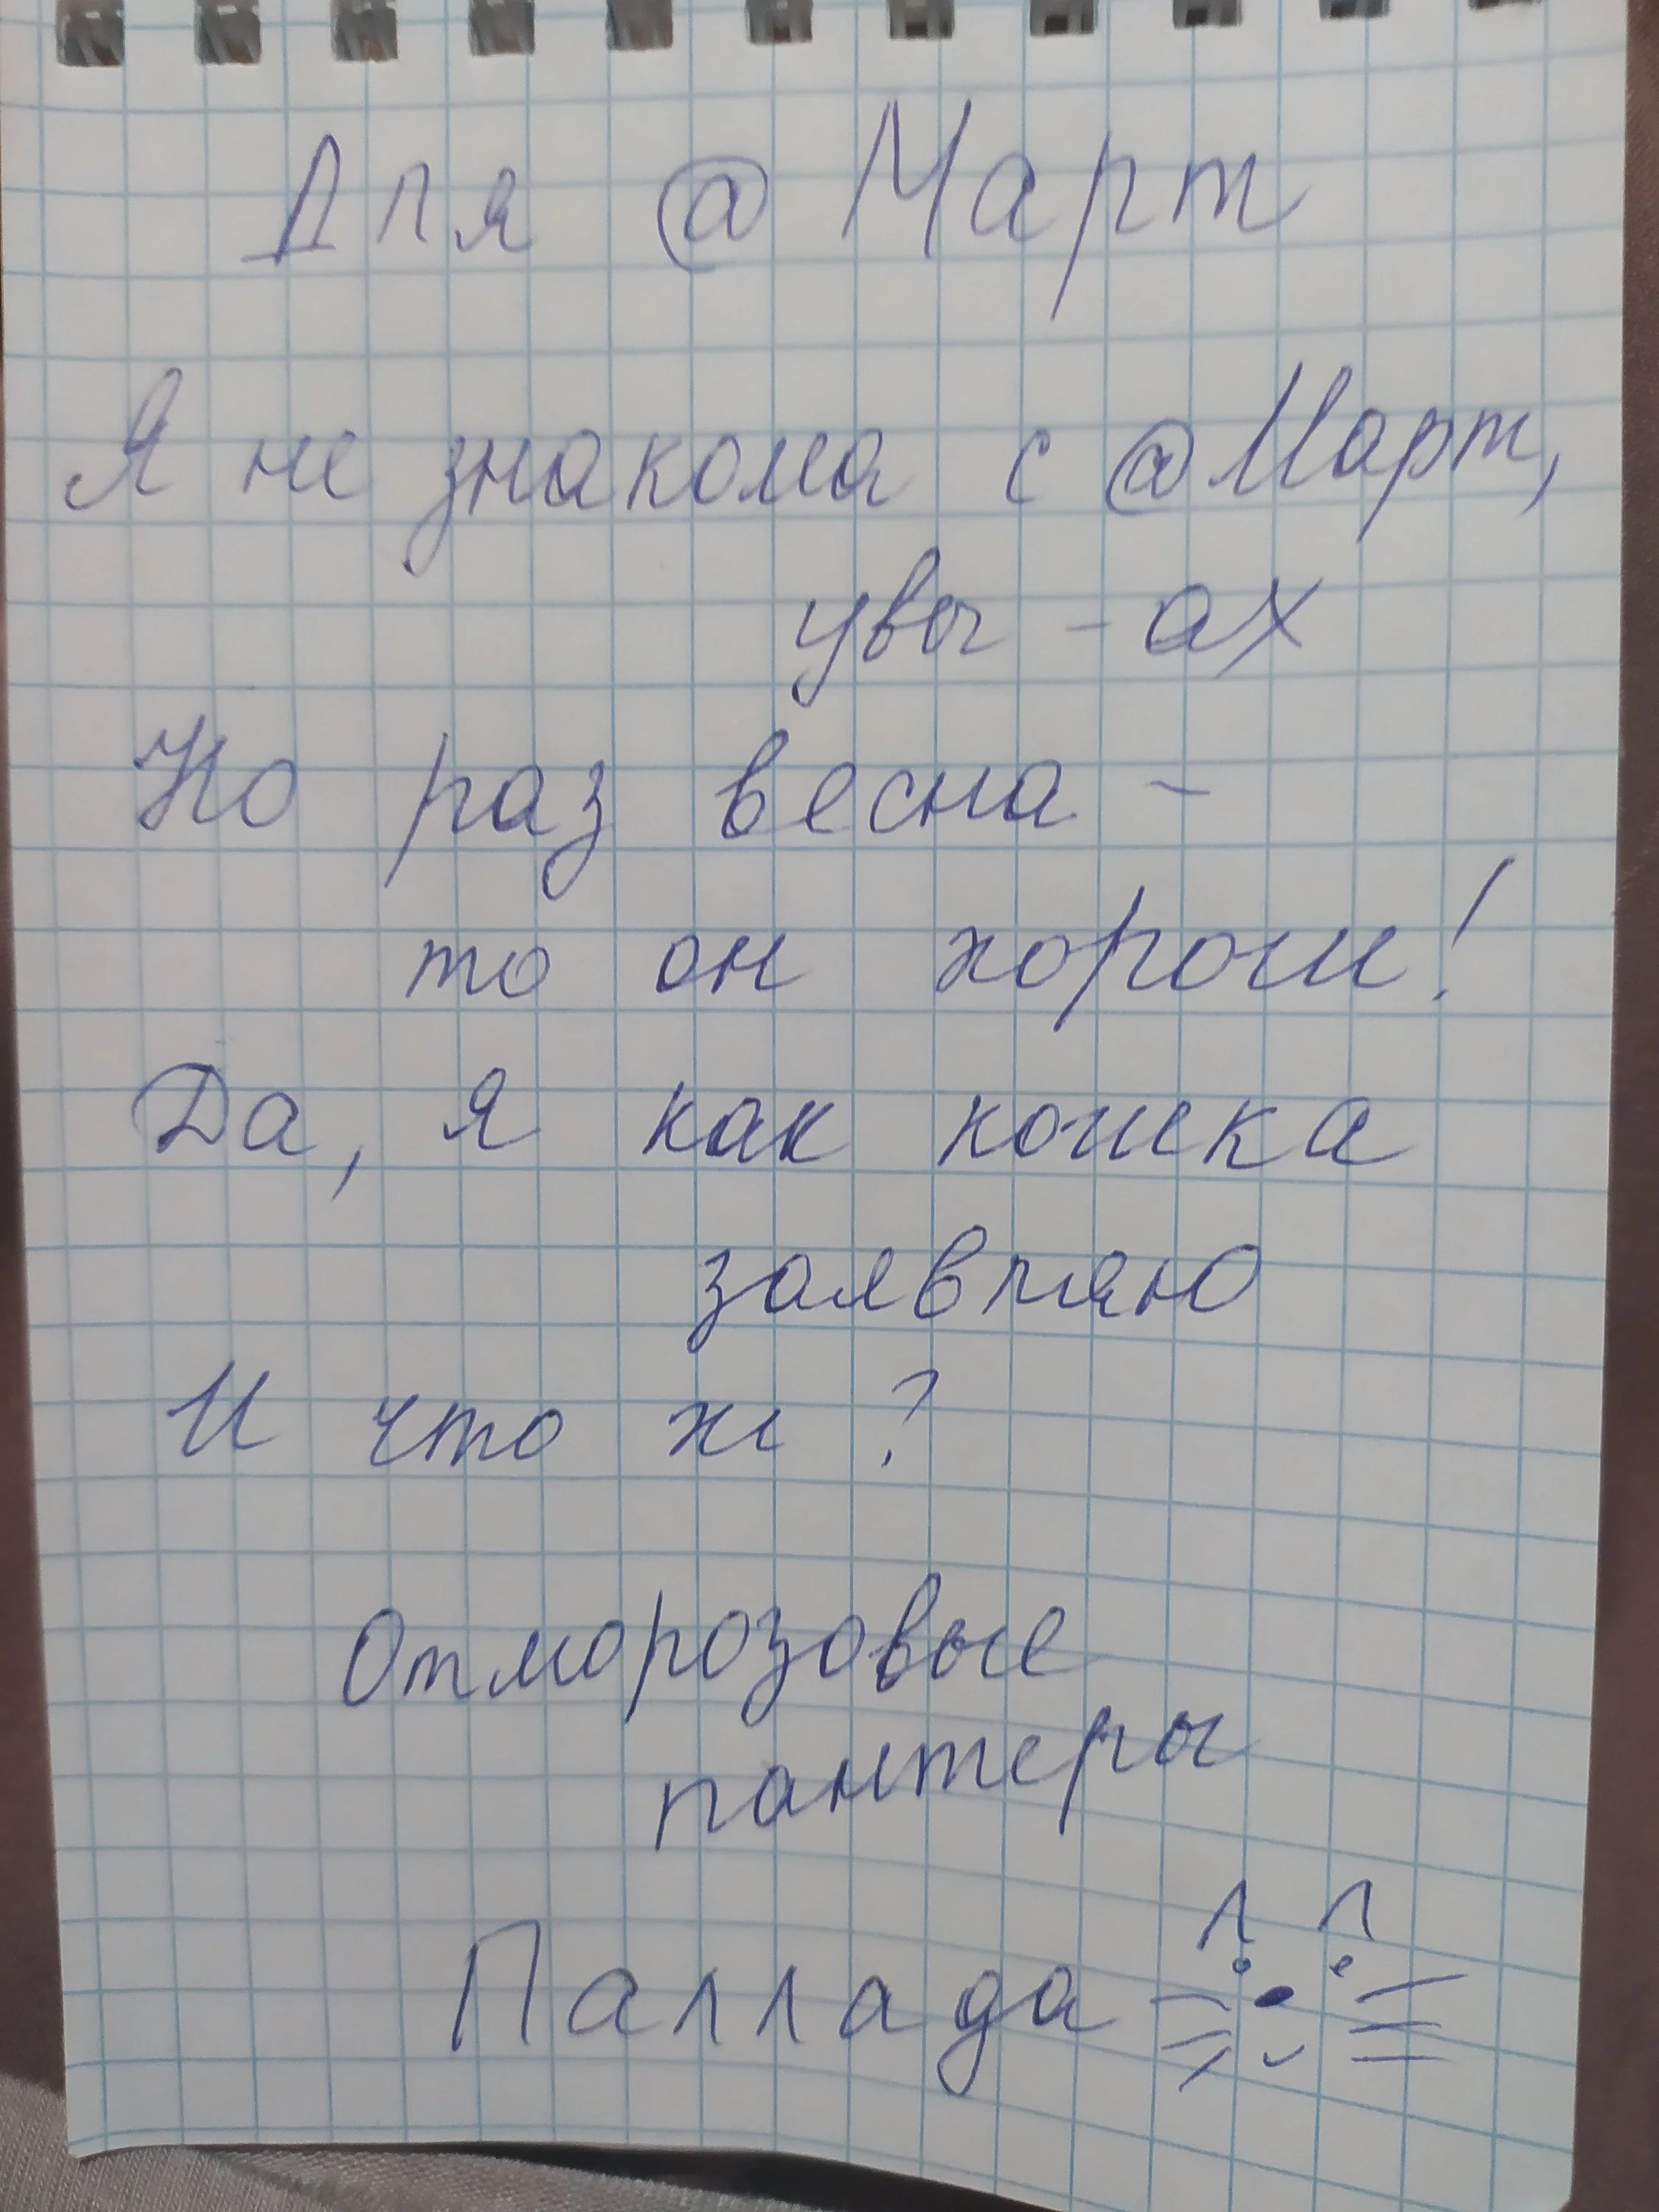 Для @Март
Я не знакома с @Март,
увы - ах
Но раз весна -
то он хорош!
Да, я как кошка
заявляю
И что ж ?
Отморозовые
пантеры
Паллада